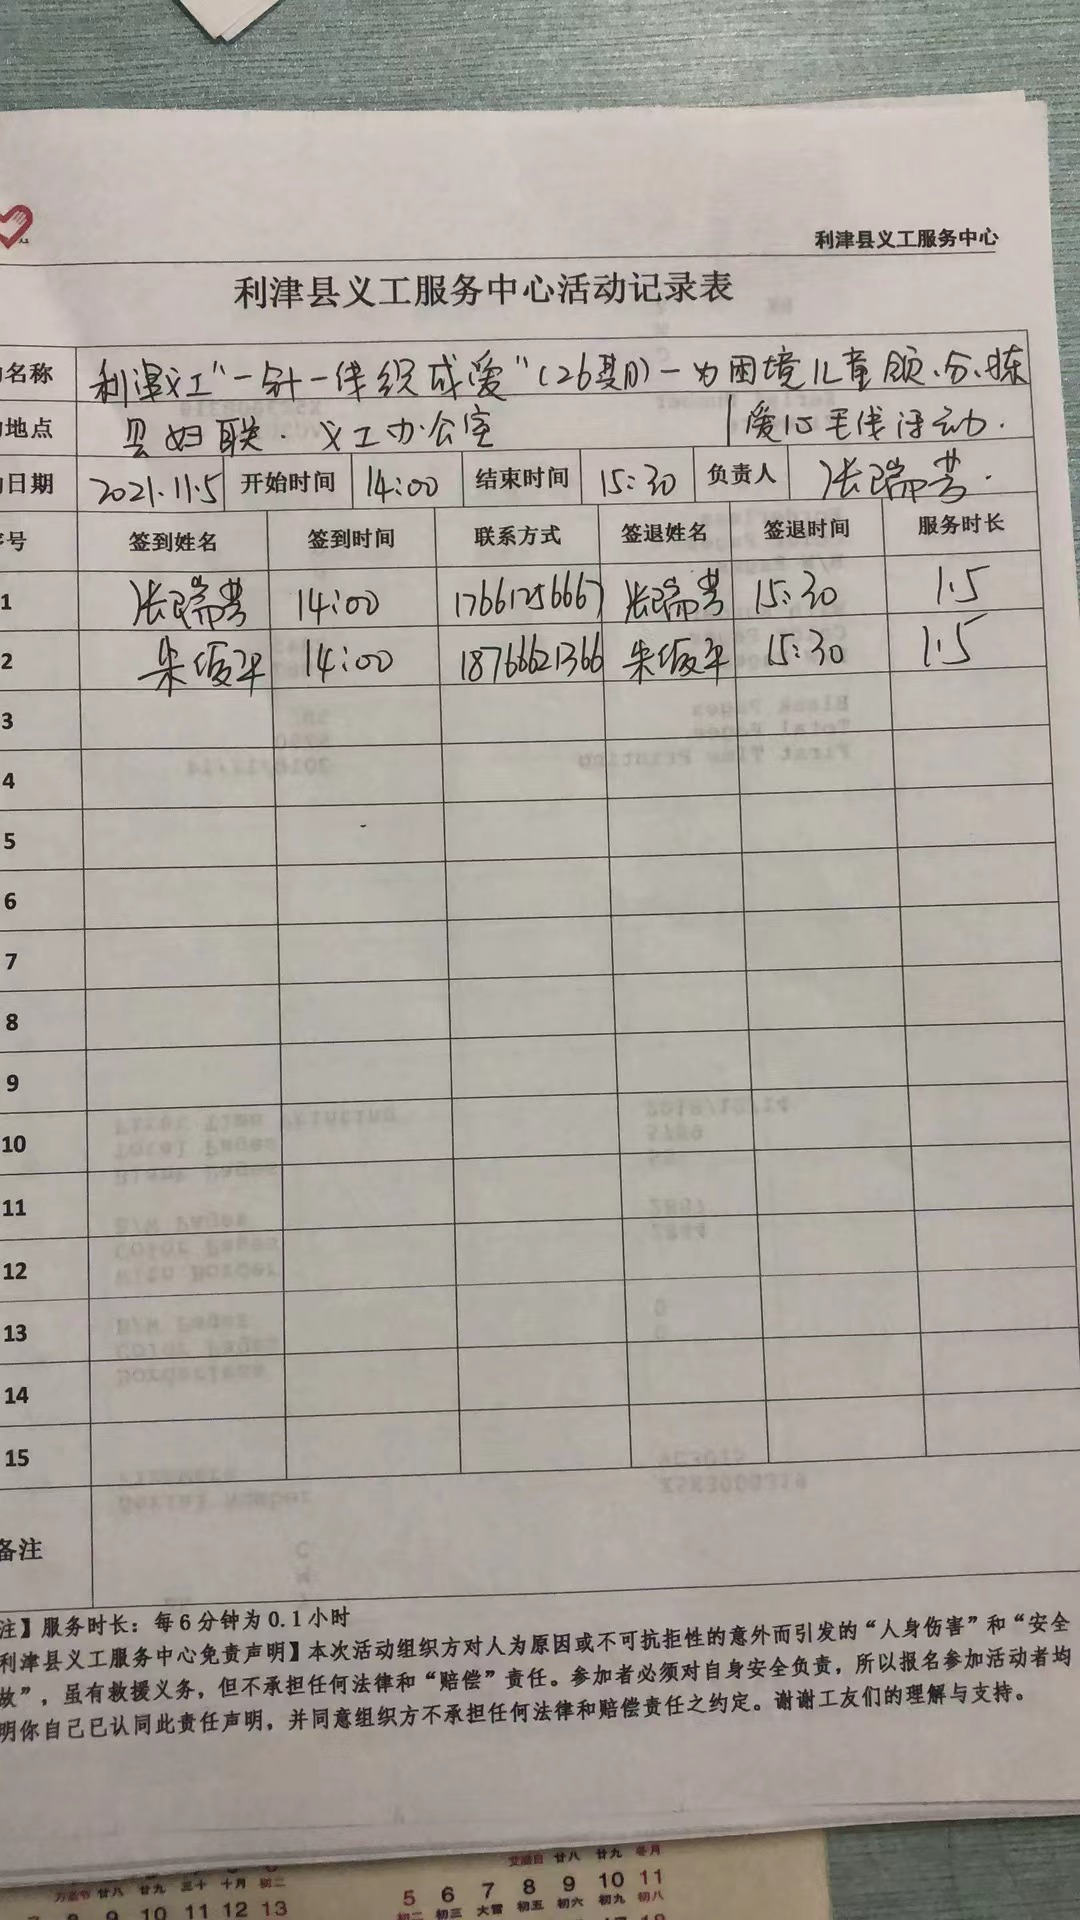 利津县义工服务中心
利津县义工服务中心活动记录表
名称 利津义工“一针一线织成爱”(26期)—为困境儿童领、分、拣
地点 县妇联、义工办公室 爱心毛线活动.
日期 2021.11.5 开始时间 14:00 结束时间 15:30 负责人 张瑞芳.
号 签到姓名 签到时间 联系方式 签退姓名 签退时间 服务时长
1 张瑞芳 14:00 17661256667 张瑞芳 15:30 1.5
2 朱 平 14:00 18766621366 朱 平 15:30 1.5
3
4
5
6
7
8
9
10
11
12
13
14
15
备注
注】服务时长：每6分钟为0.1小时
利津县义工服务中心免责声明】本次活动组织方对人为原因或不可抗拒性的意外而引发的“人身伤害”和“安全
故”，虽有救援义务，但不承担任何法律和“赔偿”责任。参加者必须对自身安全负责，所以报名参加活动者均
明你自己已认同此责任声明，并同意组织方不承担任何法律和赔偿责任之约定。谢谢工友们的理解与支持。
廿八 廿九 三十 十月 初二
艾滋日 廿八 廿九 冬月
8 9 10 11 12 13
5 6 7 8 9 10 11
初二 初三 大雪 初五 初六 初九 初八